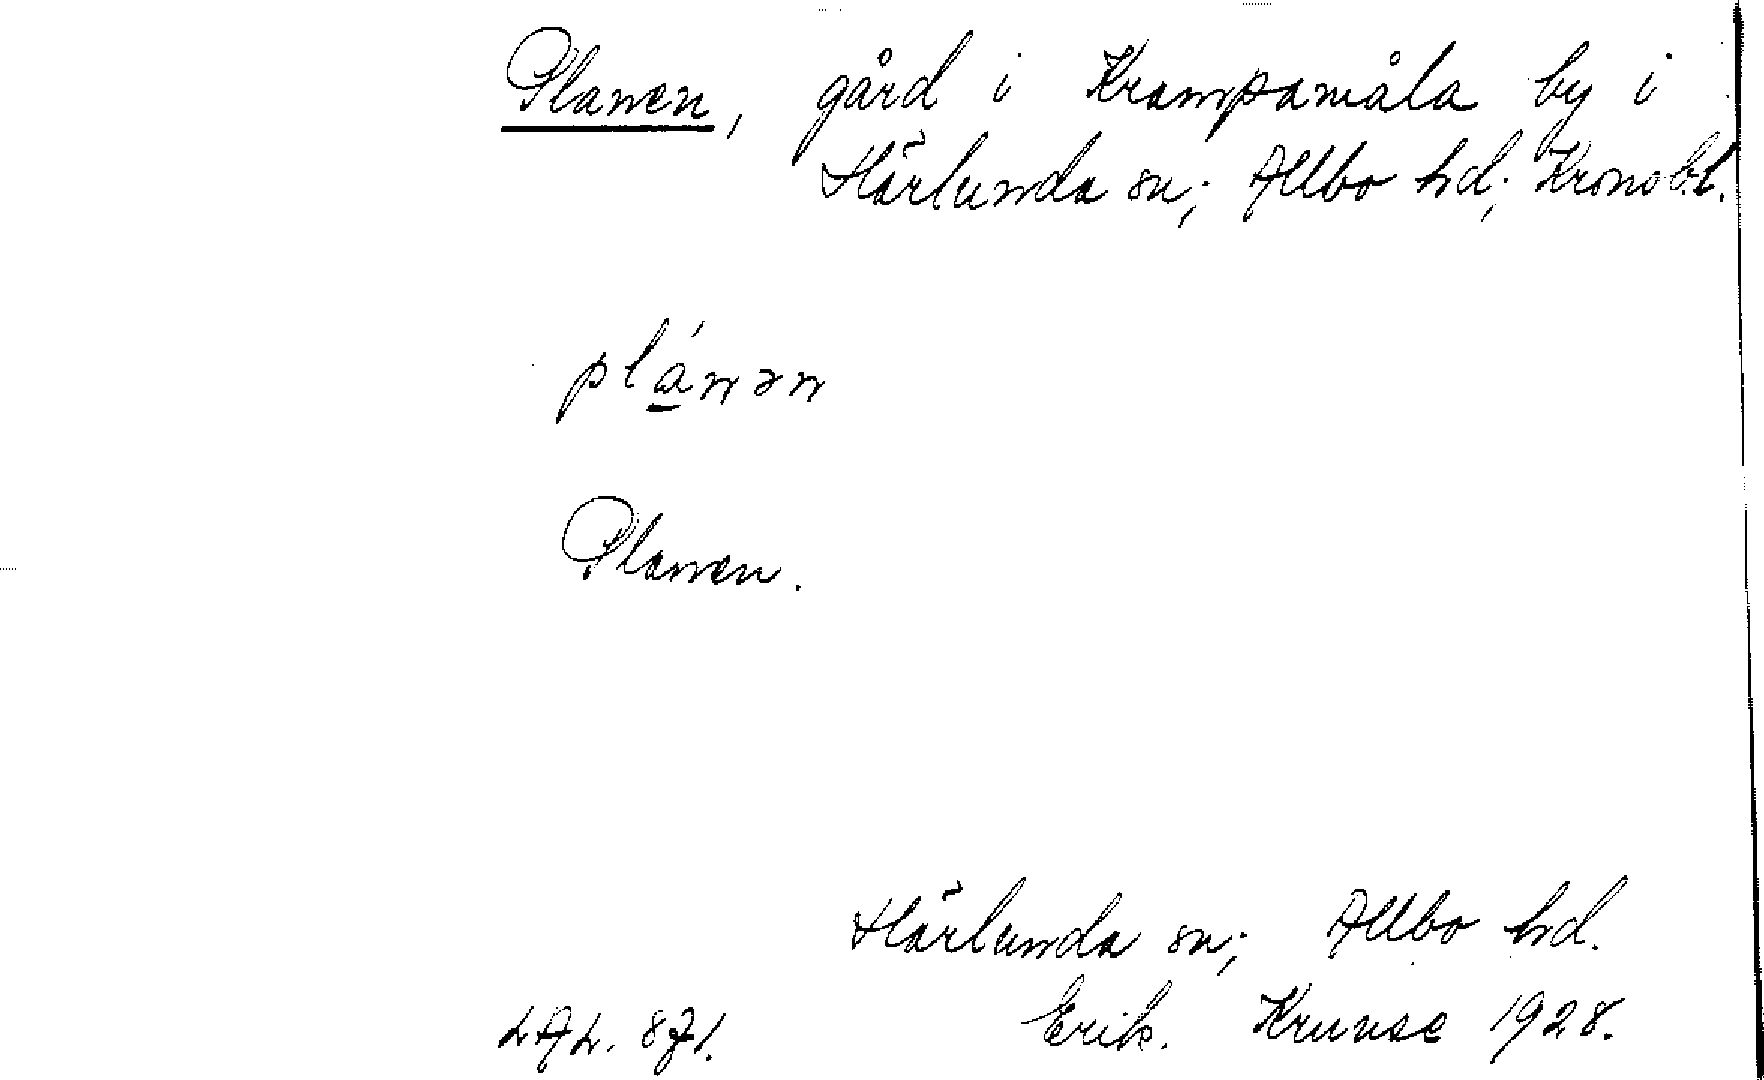 Planen, gård i Krampamåla by i
Härlunda sn; Allbo hd; Kronob.l.
plánən
Planen.
Härlunda sn; Allbo hd.
LAL. 871. Erik. Kruuse 1928.